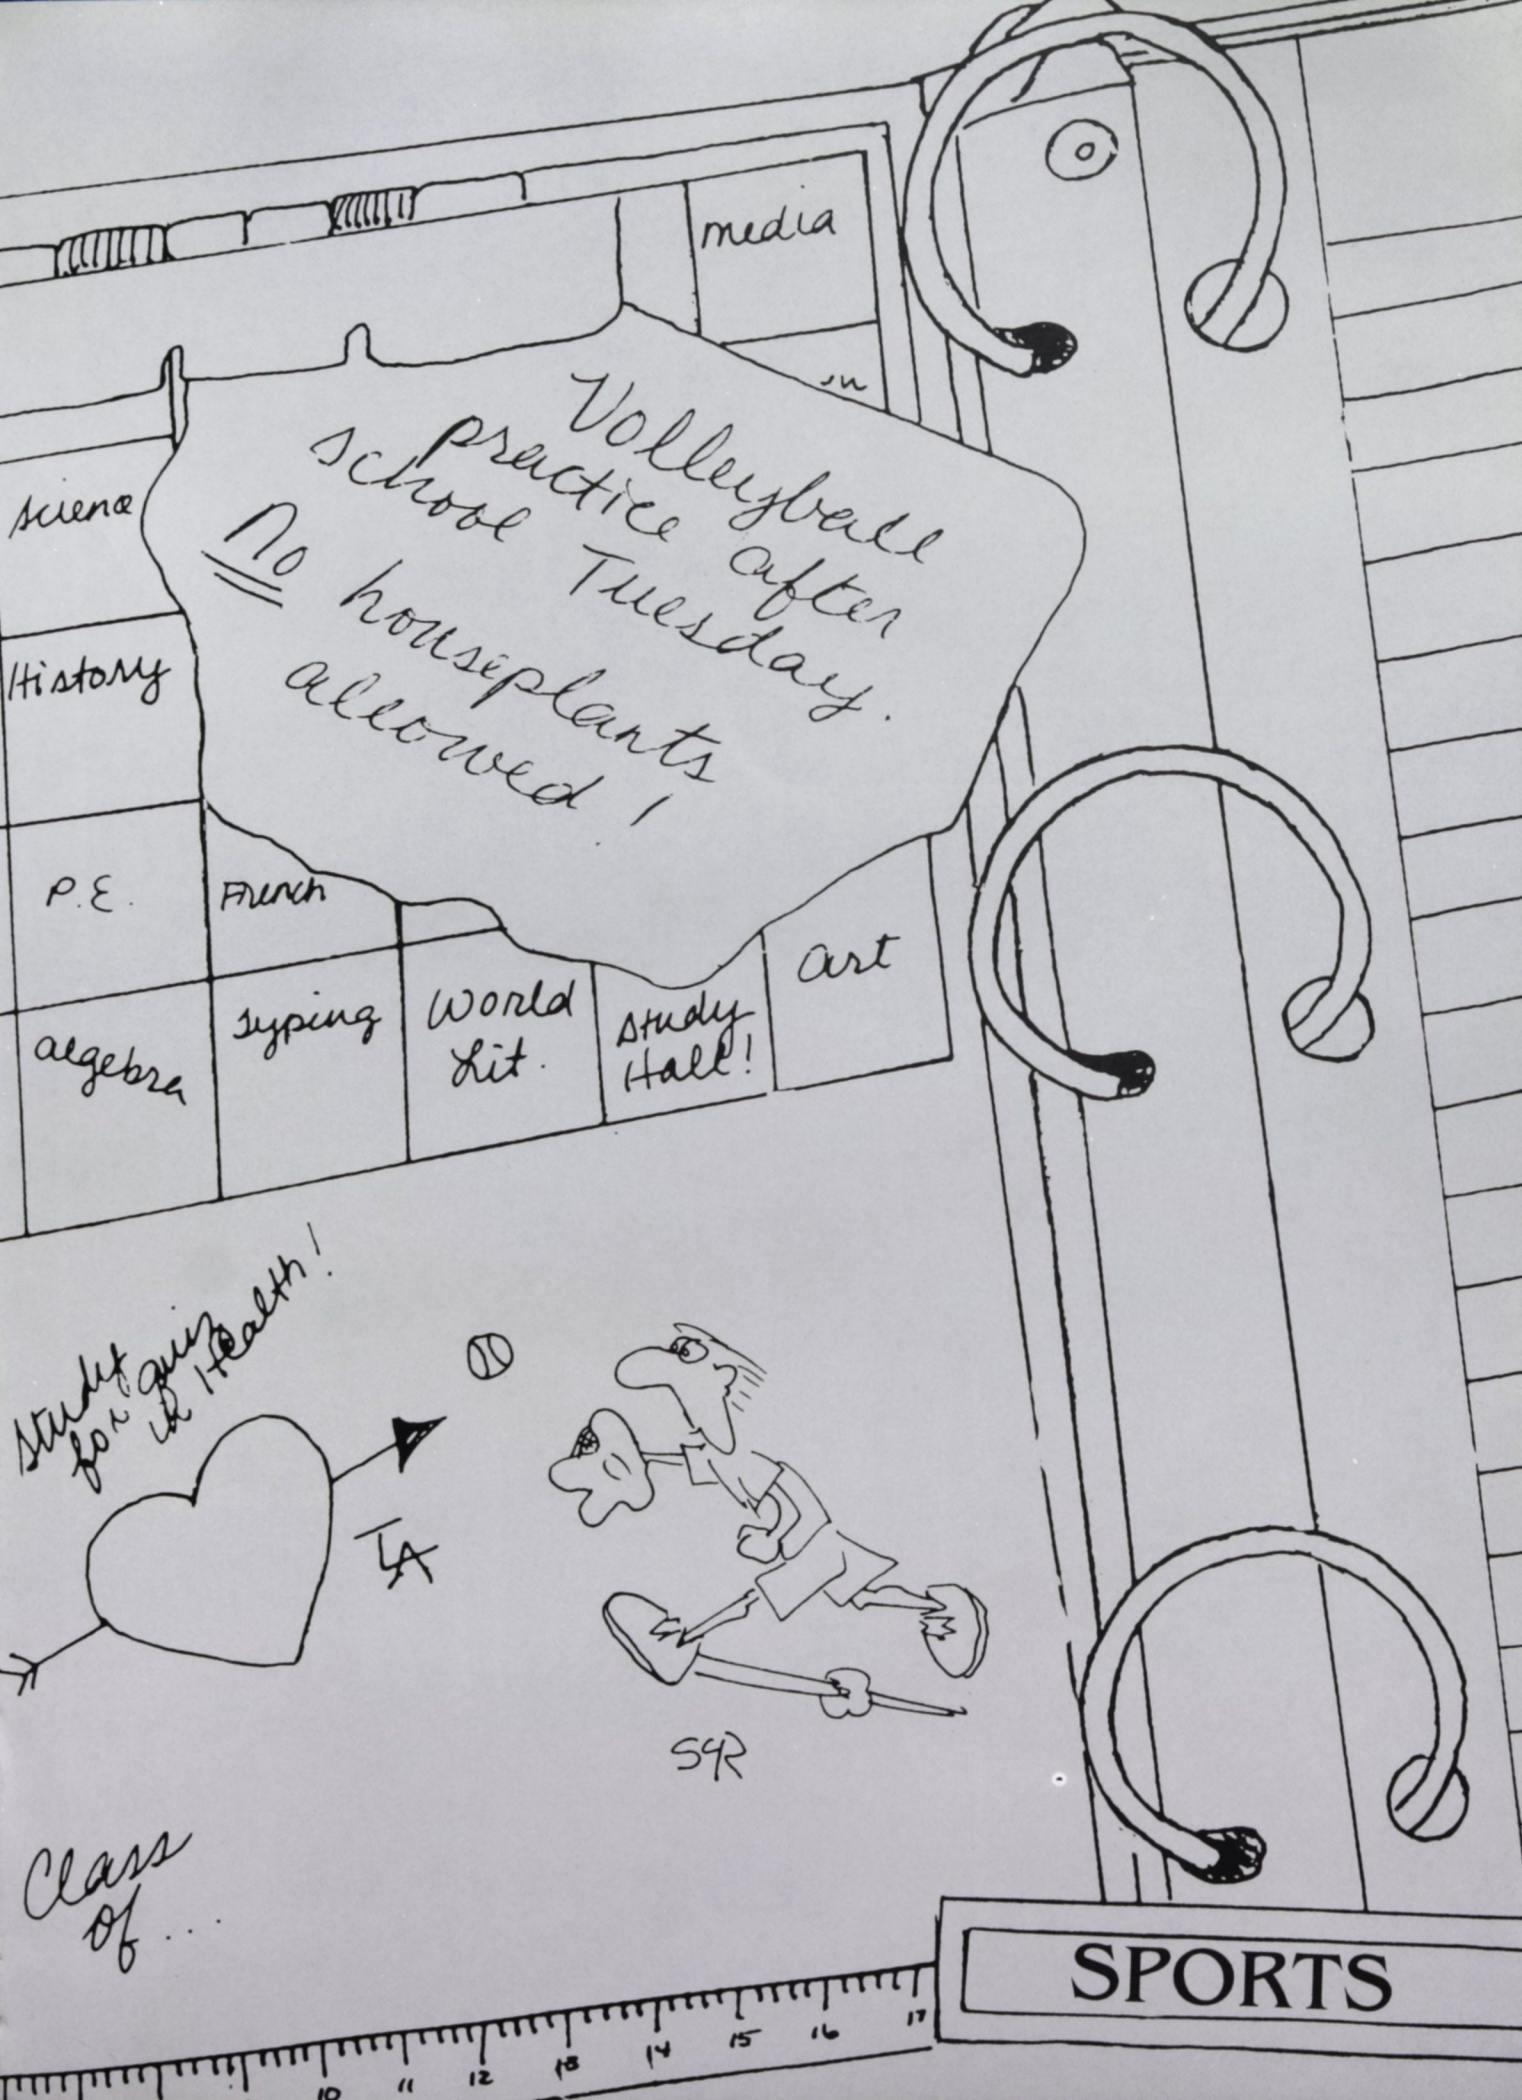 media
Volleyball
practice after
school Tuesday.
No houseplants
allowed!
Science
History
P.E.
French
Art
Algebra
Typing
World
Lit.
Study
Hall!
Study
for quiz
in Health!
Class
of...
SPORTS
10 11 12 13 14 15 16 17